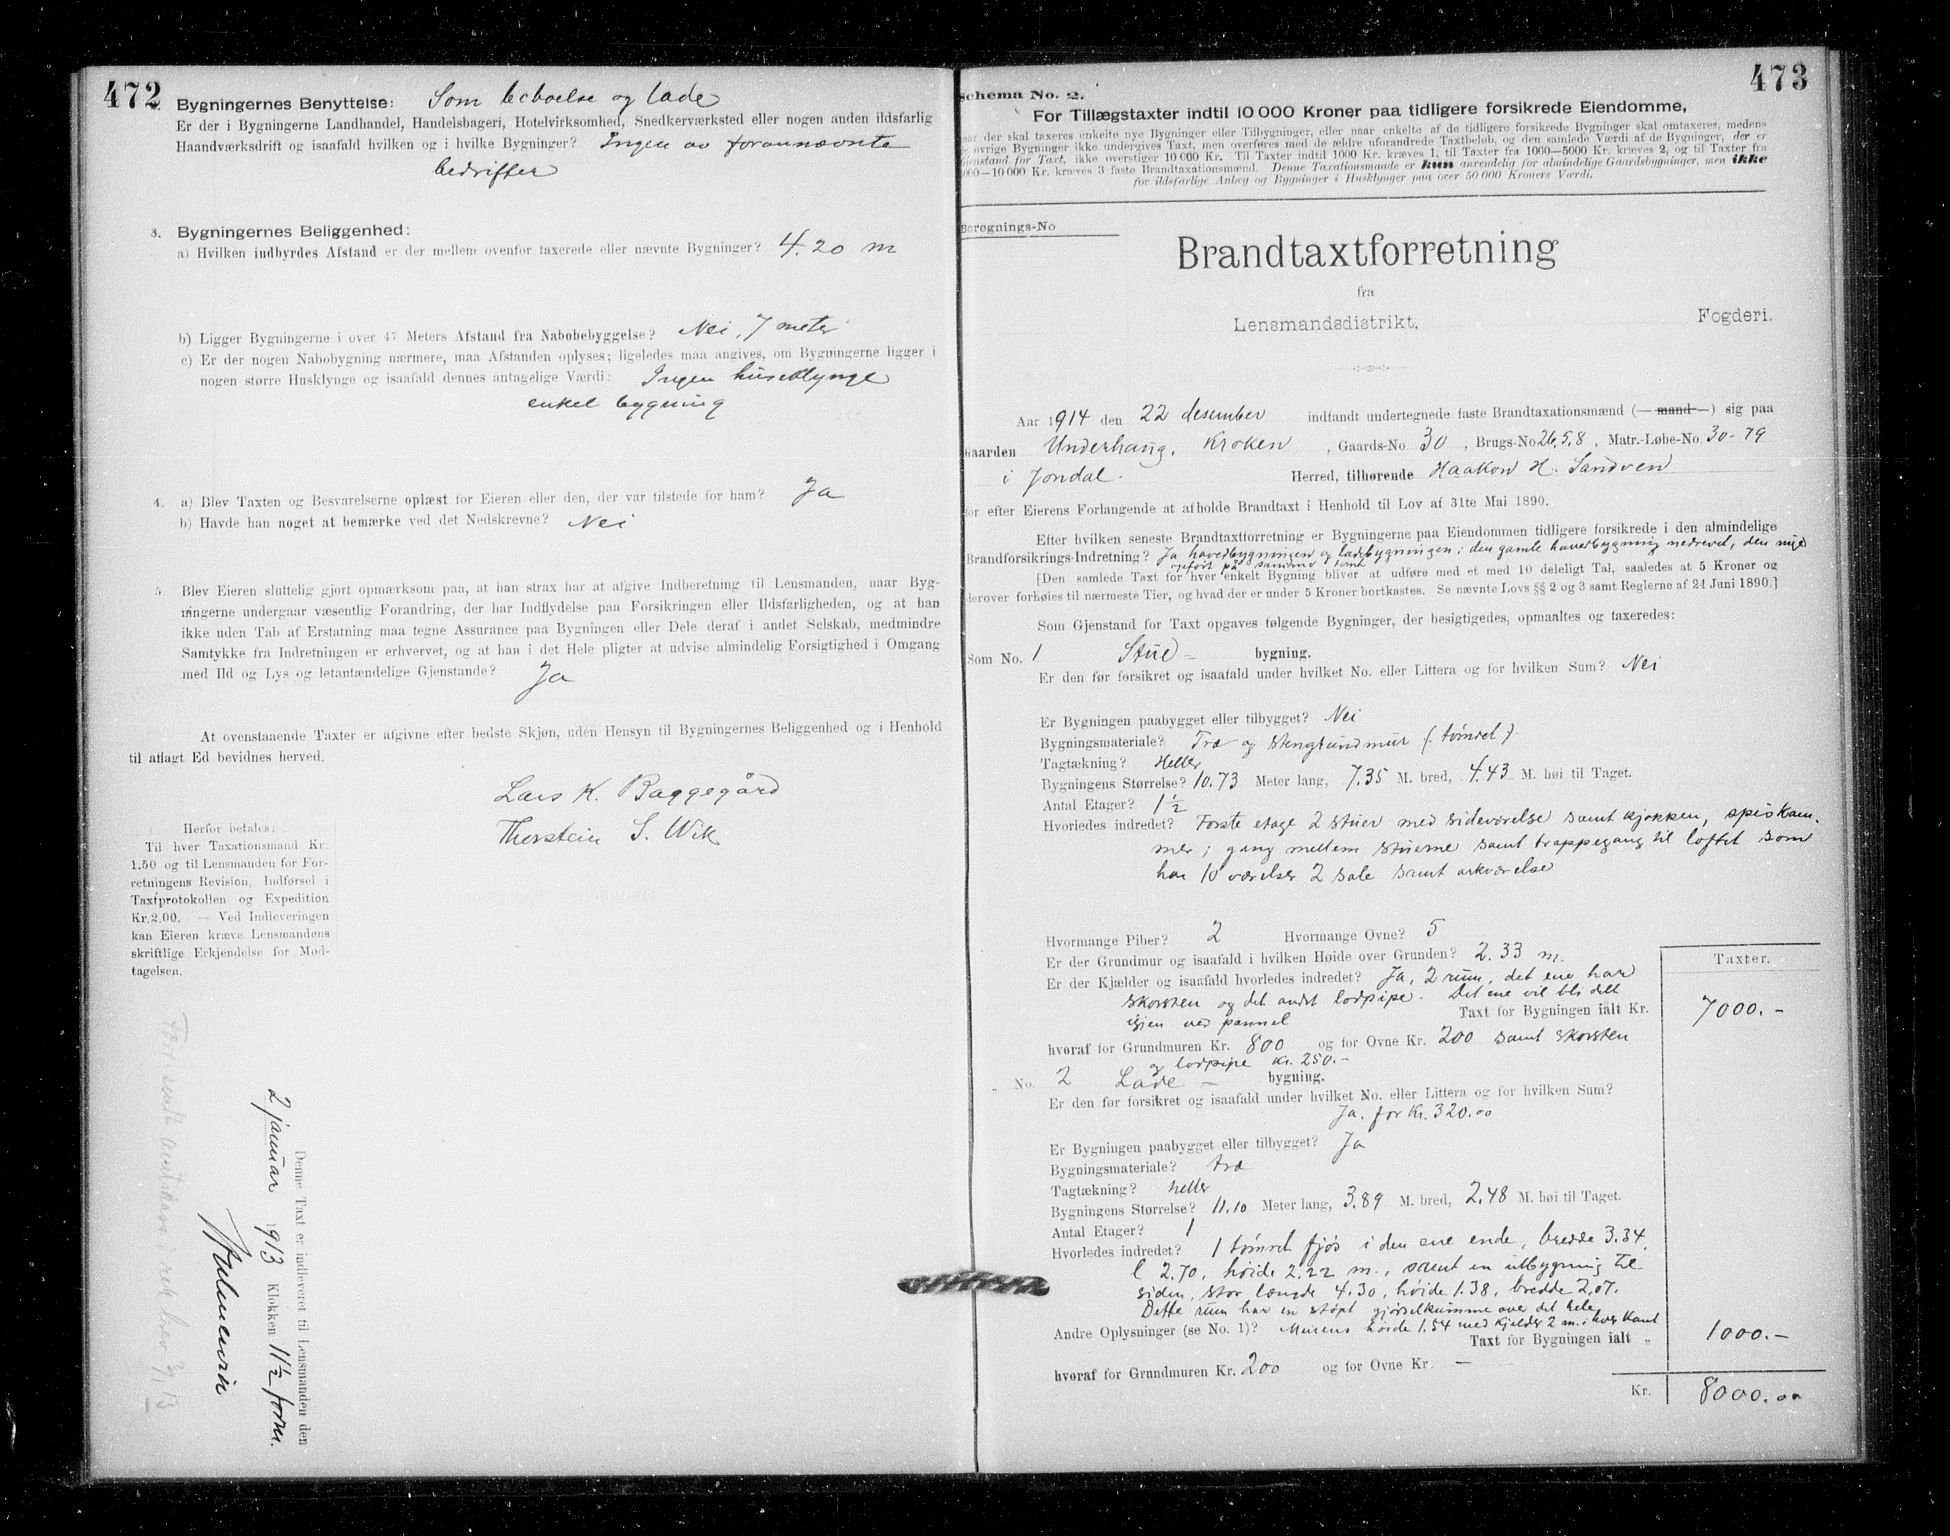 472
Bygningernes Benyttelse: Som beboelse og lade
Er der i Bygningerne Landhandel, Handelsbageri, Hotelvirksomhed, Snedkerværksted eller nogen anden ildsfarlig
Haandværksdrift og isaafald hvilken og i hvilke Bygninger? Ingen av forannævnte
bedrifter
3. Bygningernes Beliggenhed:
a) Hvilken indbyrdes Afstand er der mellem ovenfor taxerede eller nævnte Bygninger? 4.20 m
b) Ligger Bygningerne i over 47 Meters Afstand fra Nabobebyggelse? Nei, 7 meter
c) Er der nogen Nabobygning nærmere, maa Afstanden oplyses; ligeledes maa angives, om Bygningerne ligger i
nogen større Husklynge og isaafald dennes antagelige Værdi: Ingen huseklynge
enkel bygning
4. a) Blev Taxten og Besvarelserne oplæst for Eieren eller den, der var tilstede for ham? Ja
b) Havde han noget at bemærke ved det Nedskrevne? Nei
5. Blev Eieren sluttelig gjort opmærksom paa, at han strax har at afgive Indberetning til Lensmanden, naar Byg-
ningerne undergaar væsentlig Forandring, der har Indflydelse paa Forsikringen eller Ildsfarligheden, og at han
ikke uden Tab af Erstatning maa tegne Assurance paa Bygningen eller Dele deraf i andet Selskab, medmindre
Samtykke fra Indretningen er erhvervet, og at han i det Hele pligter at udvise almindelig Forsigtighed i Omgang
med Ild og Lys og letantændelige Gjenstande? Ja
At ovenstaaende Taxter er afgivne efter bedste Skjøn, uden Hensyn til Bygningernes Beliggenhed og i Henhold
til aflagt Ed bevidnes herved.
Lars K. Baggegård
Thorstein S. Wik
Herfor betales:
Til hver Taxationsmand Kr.
1.50 og til Lensmanden for For-
retningens Revision, Indførsel i
Taxtprotokollen og Expedition
Kr. 2.00. — Ved Indleveringen
kan Eieren kræve Lensmandens
skriftlige Erkjendelse for Mod-
tagelsen.
Denne Taxt er indleveret til Lensmanden den
2 januar 1913 Klokken 11½ form.
473
Schema No. 2.
For Tillægstaxter indtil 10 000 Kroner paa tidligere forsikrede Eiendomme,
naar der skal taxeres enkelte nye Bygninger eller Tilbygninger, eller naar enkelte af de tidligere forsikrede Bygninger skal omtaxeres, medens
de øvrige Bygninger ikke undergives Taxt, men overføres med de ældre uforandrede Taxtbeløb, og den samlede Værdi af de Bygninger, der er
Gjenstand for Taxt, ikke overstiger 10 000 Kr. Til Taxter indtil 1000 Kr. kræves 1, til Taxter fra 1000—5000 Kr. kræves 2, og til Taxter fra
5000—10 000 Kr. kræves 3 faste Brandtaxationsmænd. Denne Taxationsmaade er kun anvendelig for almindelige Gaardsbygninger, men ikke
for ildsfarlige Anlæg og Bygninger i Husklynger paa over 50 000 Kroners Værdi.
Beregnings-No
Brandtaxtforretning
fra
Lensmandsdistrikt, Fogderi.
Aar 1914 den 22 desember indfandt undertegnede faste Brandtaxationsmænd (—mand—) sig paa
Gaarden Underhaug, Kroken, Gaards-No 30, Brugs-No 26,5,8, Matr.-Løbe-No. 30-79
i Jondal. Herred, tilhørende Haakon H. Sandven
for efter Eierens Forlangende at afholde Brandtaxt i Henhold til Lov af 31te Mai 1890.
Efter hvilken seneste Brandtaxtforretning er Bygningerne paa Eiendommen tidligere forsikrede i den almindelige
Brandforsikrings-Indretning? Ja havedbygningen og ladebygningen; den gamle havedbygning nedrevet, den nye
opført på samme tomt
[Den samlede Taxt for hver enkelt Bygning bliver at udføre med et med 10 deleligt Tal, saaledes at 5 Kroner og
derover forhøies til nærmeste Tier, og hvad der er under 5 Kroner bortkastes. Se nævnte Lovs §§ 2 og 3 samt Reglerne af 24 Juni 1890.]
Som Gjenstand for Taxt opgaves følgende Bygninger, der besigtigedes, opmaaltes og taxeredes:
Som No. 1 Stue - bygning.
Er den før forsikret og isaafald under hvilket No. eller Littera og for hvilken Sum? Nei
Er Bygningen paabygget eller tilbygget? Nei
Bygningsmateriale? Træ og stengrundmur (tømret)
Tagtækning? Heller
Bygningens Størrelse? 10.73 Meter lang, 7.35 M. bred, 4.43 M. høi til Taget.
Antal Etager? 1½
Hvorledes indredet? Første etage 2 stuer med sideværelse samt kjøkken, spiskam-
mer; gang mellem stuerne samt trappegang til loftet som
har 10 værelser 2 sale samt arkværelse
Hvormange Piber? 2 Hvormange Ovne? 5
Er der Grundmur og isaafald i hvilken Høide over Grunden? 2.33 m.
Er der Kjælder og isaafald hvorledes indredet? Ja, 2 rum, det ene har
skorsten og det andet lodpipe. Det ene vil bli delt
igjen ved pannel
Taxter.
Taxt for Bygningen ialt Kr. 7000.-
hvoraf for Grundmuren Kr. 800 og for Ovne Kr. 200 samt skorsten
og lodpipe Kr. 250.-
" No. 2 Lade - bygning.
Er den før forsikret og isaafald under hvilket No. eller Littera og for hvilken Sum?
Ja. for Kr. 320.00
Er Bygningen paabygget eller tilbygget? Ja
Bygningsmateriale? træ
Tagtækning? heller
Bygningens Størrelse? 11.10 Meter lang, 3.89 M. bred, 2.48 M. høi til Taget.
Antal Etager? 1
Hvorledes indredet? 1 tømret fjøs i den ene ende, bredde 3.34,
l 2.70, høide 2.22 m., samt en utbygning til
siden, stor længde 4.30, høide 1.38, bredde 2.07.
Dette rum har en støpt gjødselkumme over det hele
Andre Oplysninger (se No. 1)? Murens høide 1.54 med kjelder 2 m. i hver kant
Taxt for Bygningen ialt " 1000.-
hvoraf for Grundmuren Kr. 200 og for Ovne Kr. —
Kr. 8000.00